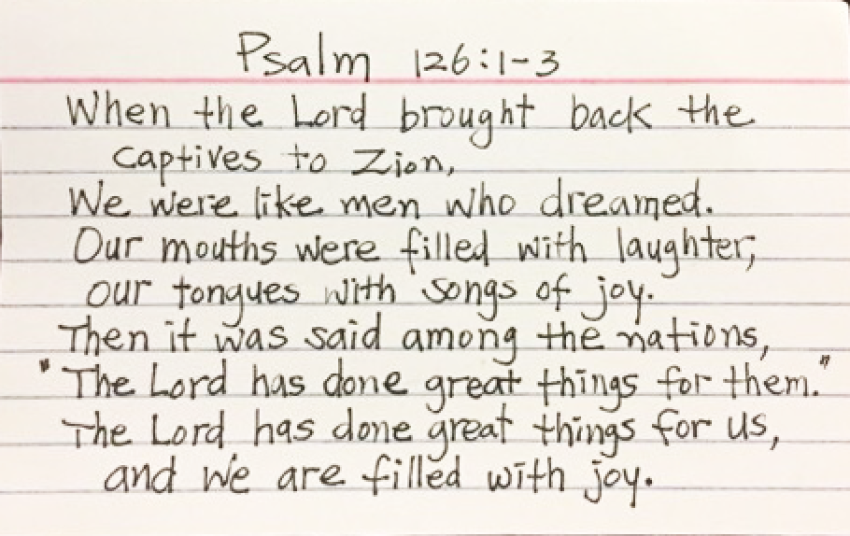 Psalm 126:1-3
When the Lord brought back the
captives to Zion,
We were like men who dreamed.
Our mouths were filled with laughter;
our tongues with songs of joy.
Then it was said among the nations,
"The Lord has done great things for them."
The Lord has done great things for us,
and we are filled with joy.